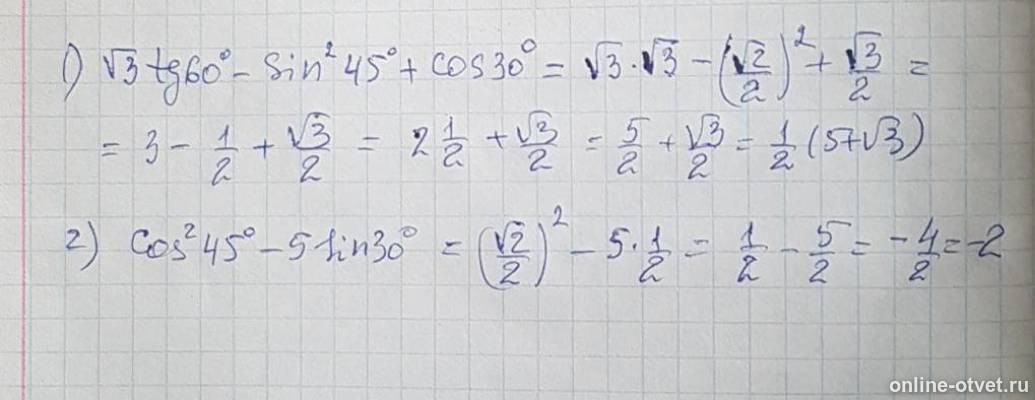 1) √3 tg60° - sin²45° + cos30° = √3·√3 - (√2/2)² + √3/2 =
= 3 - 1/2 + √3/2 = 2 1/2 + √3/2 = 5/2 + √3/2 = 1/2 (5+√3)
2) cos²45° - 5 sin30° = (√2/2)² - 5·1/2 = 1/2 - 5/2 = -4/2 = -2
online-otvet.ru